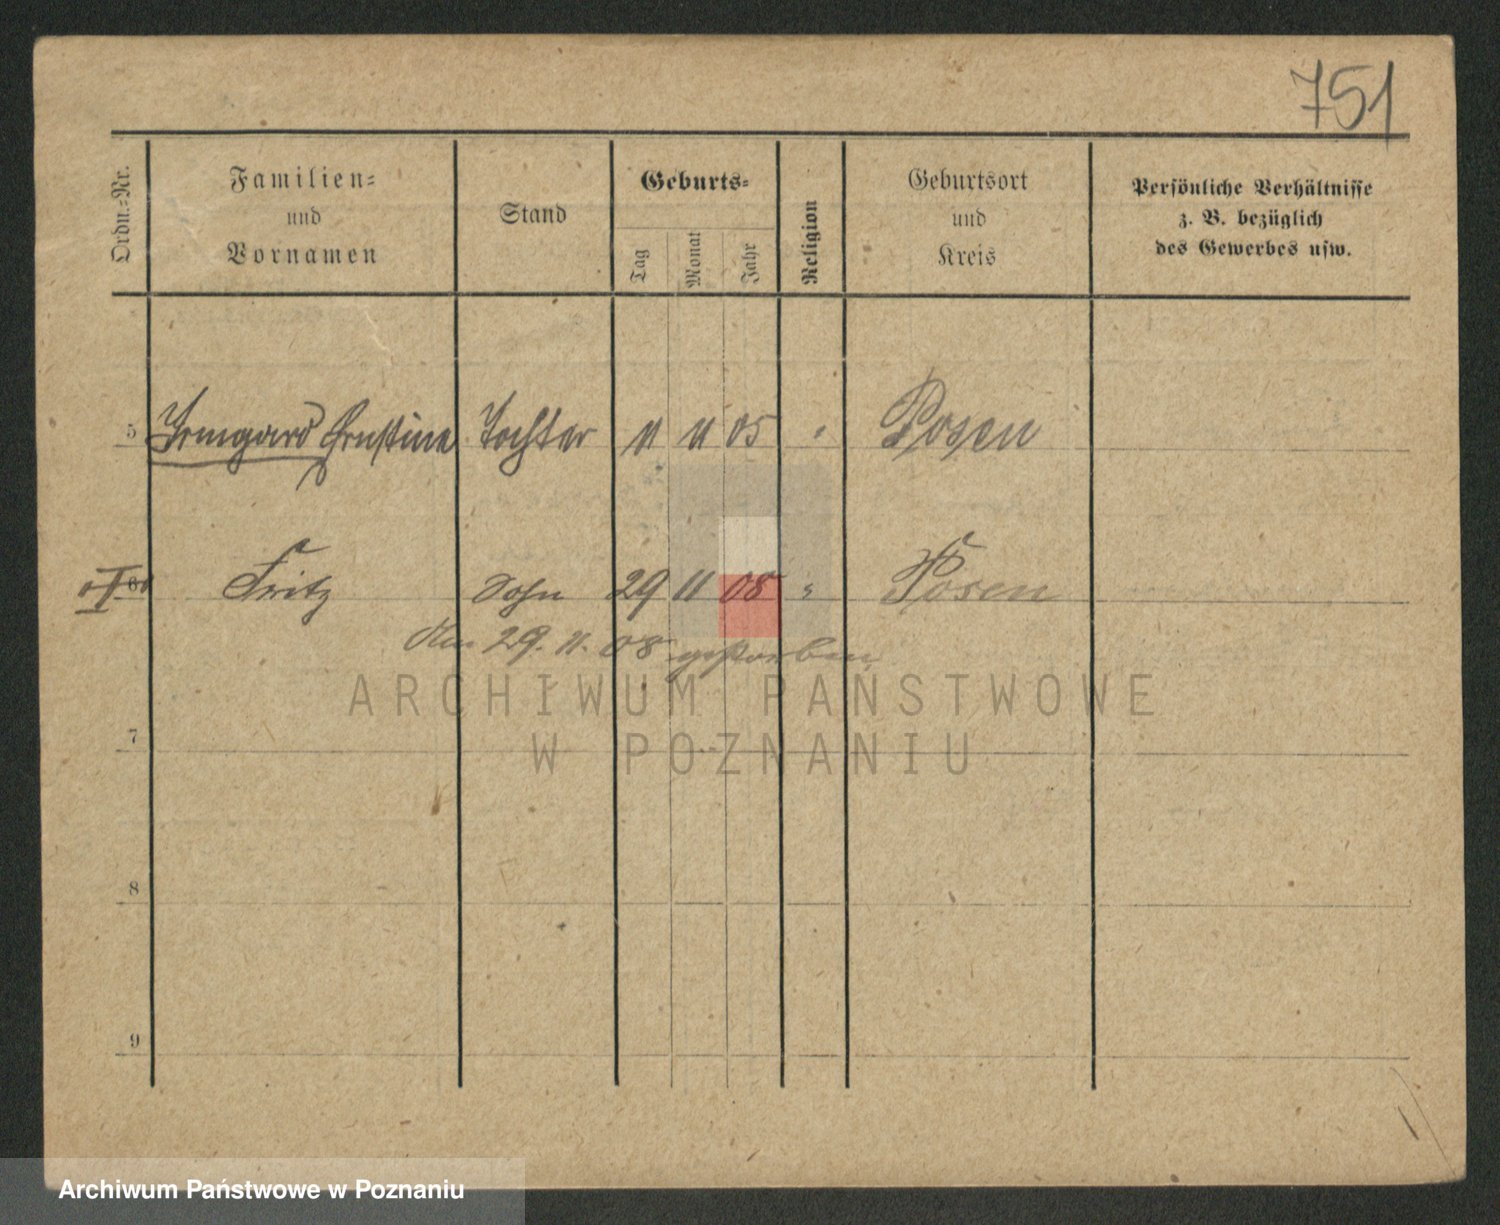 751
Ordn.-Nr.
Familien-
und
Vornamen
Stand
Geburts-
Tag
Monat
Jahr
Religion
Geburtsort
und
Kreis
Persönliche Verhältnisse
z. B. bezüglich
des Gewerbes usw.
5 Irmgard Ernstine Tochter 11 11 05 " Posen
6 Fritz Sohn 29 11 08 " Posen
Am 29. 11. 08 gestorben
ARCHIWUM PAŃSTWOWE
W POZNANIU
7
8
9
Archiwum Państwowe w Poznaniu